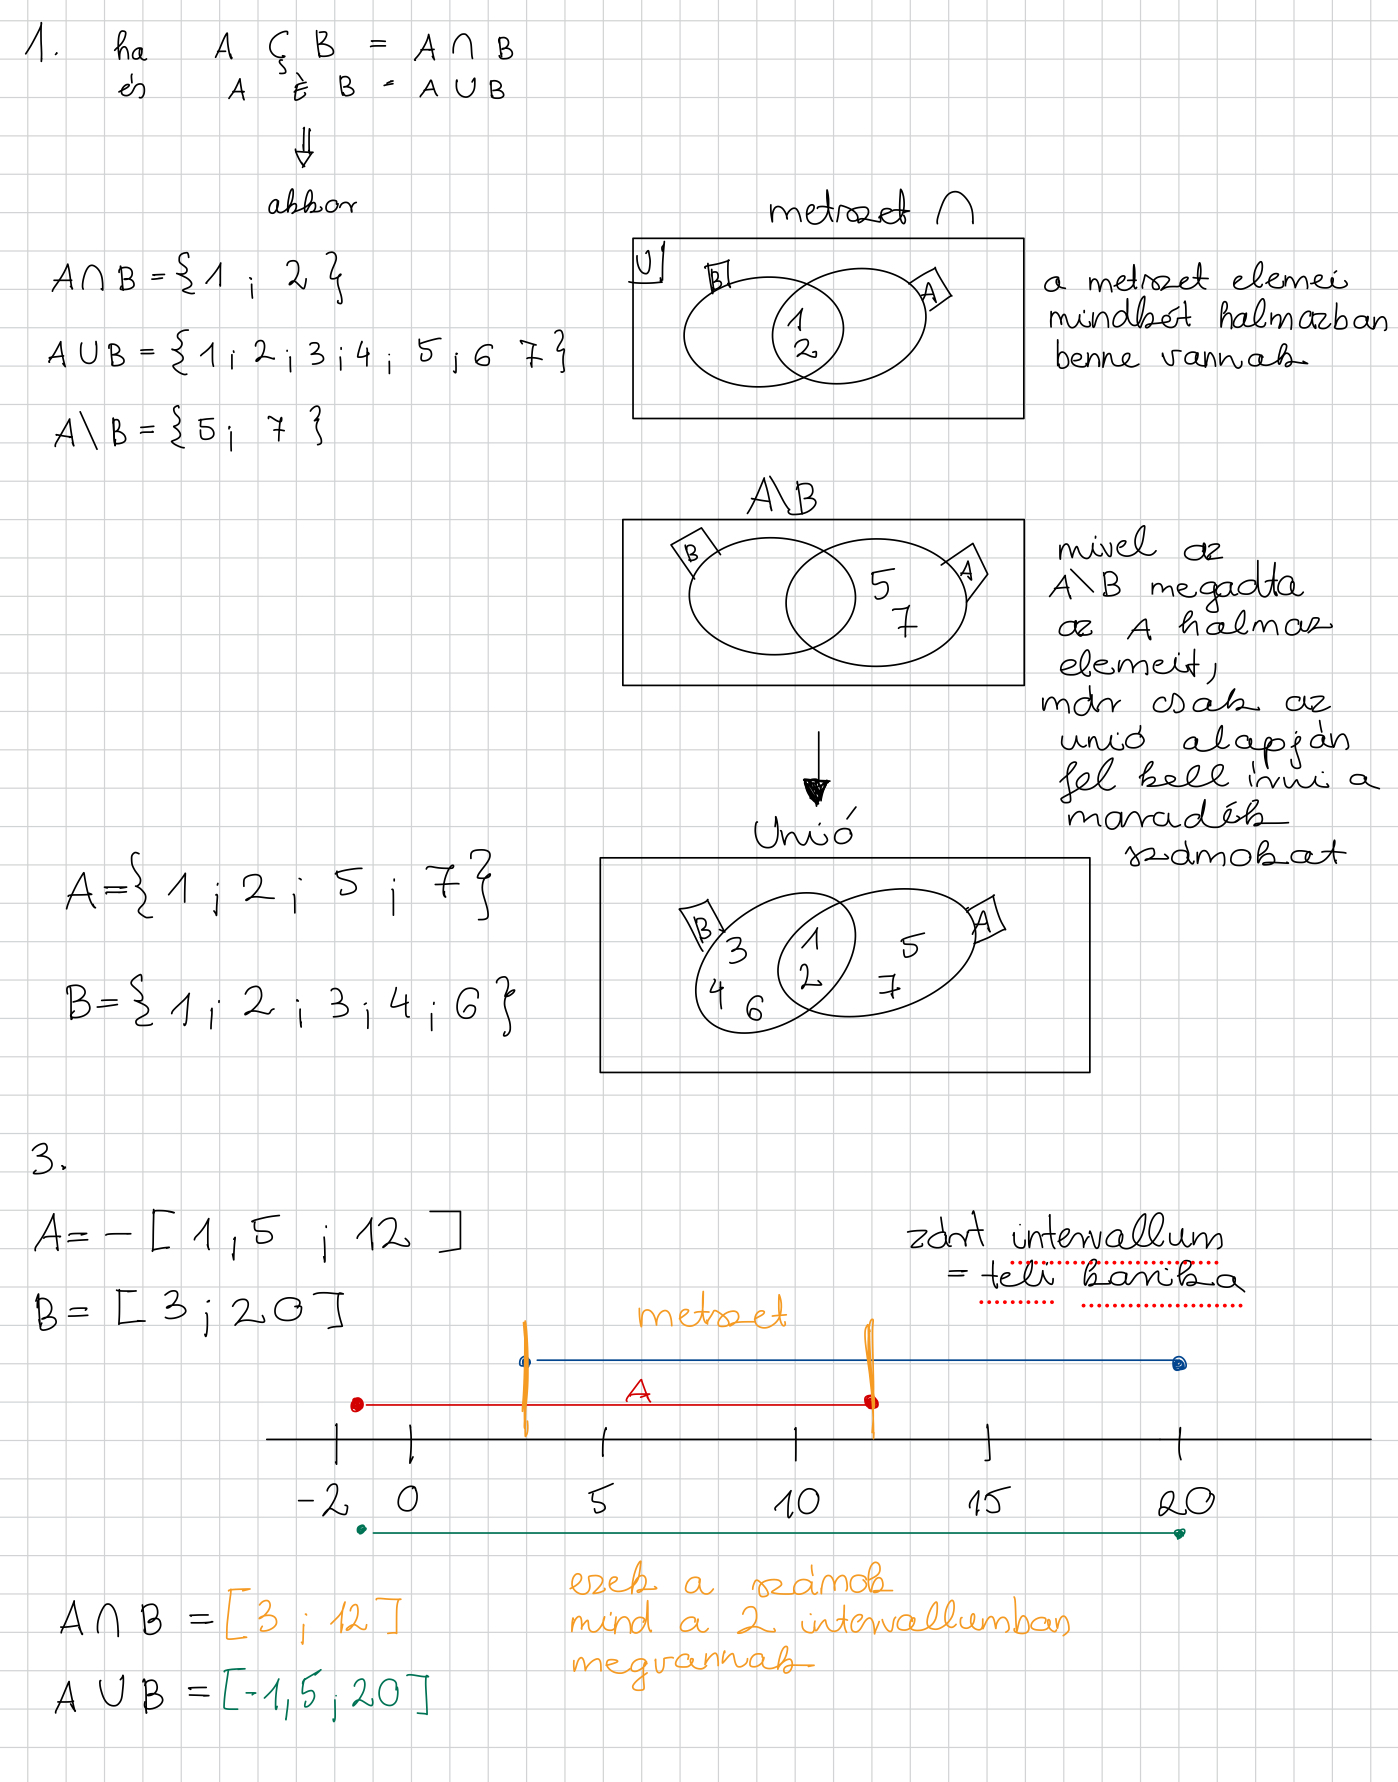 1. ha A Ç B = A ∩ B
és A È B = A ∪ B
⇓
akkor
A∩B = {1 ; 2 }
A∪B = {1 ; 2 ; 3 ; 4 ; 5 ; 6 7 }
A\B = {5 ; 7 }
metszet ∩
U
B
A
1
2
a metszet elemei
mindkét halmazban
benne vannak
A\B
B
A
5
7
mivel az
A\B megadta
az A halmaz
elemeit,
már csak az
unió alapján
fel kell írni a
maradék
számokat
Unió
B
A
3
4
6
1
2
5
7
A={ 1 ; 2 ; 5 ; 7 }
B={ 1 ; 2 ; 3 ; 4 ; 6 }
3.
A= - [ 1,5 ; 12 ]
B= [ 3 ; 20 ]
zárt intervallum
= teli karika
metszet
A
-2 0 5 10 15 20
ezek a számok
mind a 2 intervallumban
megvannak
A ∩ B = [3 ; 12 ]
A ∪ B = [-1,5 ; 20 ]